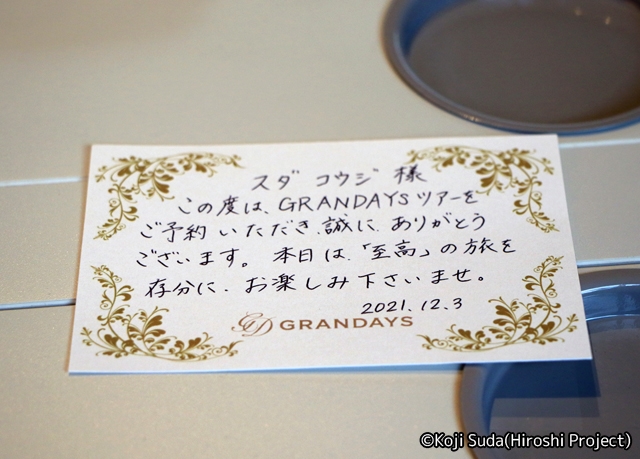 スダ コウジ 様
この度は、GRANDAYSツアーを
ご予約いただき、誠に、ありがとう
ございます。本日は、「至高」の旅を
存分に、お楽しみ下さいませ。
2021.12.3
GD GRANDAYS
©Koji Suda(Hiroshi Project)